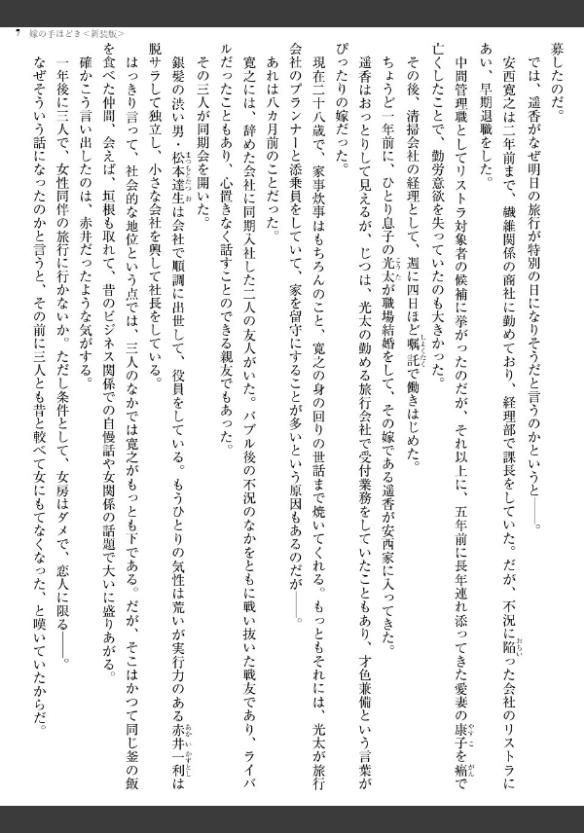 7 嫁の手ほどき＜新装版＞
募したのだ。
では、遥香がなぜ明日の旅行が特別の日になりそうだと言うのかというと――。
安西寛之は二年前まで、繊維関係の商社に勤めており、経理部で課長をしていた。だが、不況に陥った会社のリストラに
あい、早期退職をした。
中間管理職としてリストラ対象者の候補に挙がったのだが、それ以上に、五年前に長年連れ添ってきた愛妻の康子を癌で
亡くしたことで、勤労意欲を失っていたのも大きかった。
その後、清掃会社の経理として、週に四日ほど嘱託で働きはじめた。
ちょうど一年前に、ひとり息子の光太が職場結婚をして、その嫁である遥香が安西家に入ってきた。
遥香はおっとりして見えるが、じつは、光太の勤める旅行会社で受付業務をしていたこともあり、才色兼備という言葉が
ぴったりの嫁だった。
現在二十八歳で、家事炊事はもちろんのこと、寛之の身の回りの世話まで焼いてくれる。もっともそれには、光太が旅行
会社のプランナーと添乗員をしていて、家を留守にすることが多いという原因もあるのだが――。
あれは八ヵ月前のことだった。
寛之には、辞めた会社に同期入社した二人の友人がいた。バブル後の不況のなかをともに戦い抜いた戦友であり、ライバ
ルだったこともあり、心置きなく話すことのできる親友でもあった。
その三人が同期会を開いた。
銀髪の渋い男・松本達生は会社で順調に出世して、役員をしている。もうひとりの気性は荒いが実行力のある赤井一利は
脱サラして独立し、小さな会社を興して社長をしている。
はっきり言って、社会的な地位という点では、三人のなかでは寛之がもっとも下である。だが、そこはかつて同じ釜の飯
を食べた仲間、会えば、垣根も取れて、昔のビジネス関係での自慢話や女関係の話題で大いに盛りあがる。
確かこう言い出したのは、赤井だったような気がする。
一年後に三人で、女性同伴の旅行に行かないか。ただし条件として、女房はダメで、恋人に限る――。
なぜそういう話になったのかと言うと、その前に三人とも昔と較べて女にもてなくなった、と嘆いていたからだ。